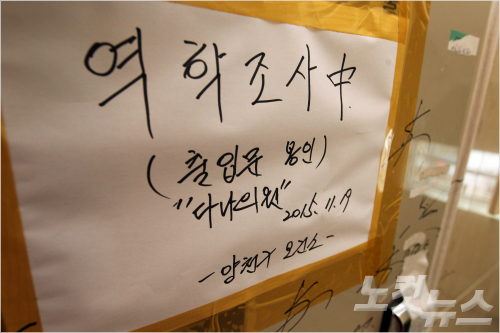 역학조사中
(출입문 봉인)
"다나의원"
2015. 11. 19
- 양천구 보건소 -
노컷뉴스